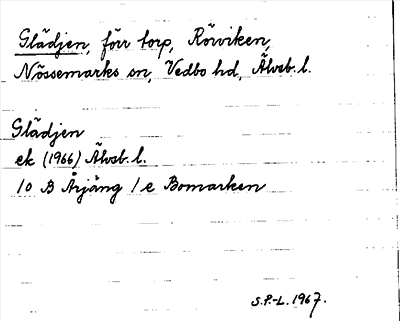 Glädjen, förr torp, Rörviken,
Nössemarks sn, Vedbo hd, Älvsb. l.
Glädjen
ek (1966) Älvsb. l.
10 B Årjäng 1 e Bomarken
S.P.-L. 1967.